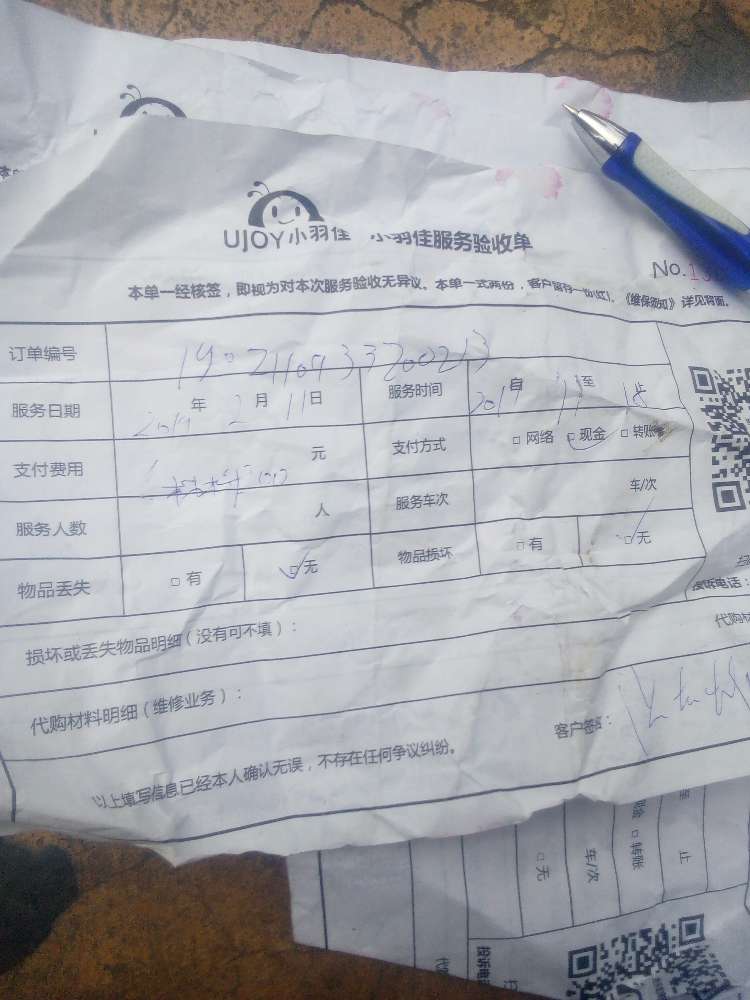 UJOY小羽佳 小羽佳服务验收单
No.13
本单一经核签，即视为对本次服务验收无异议。本单一式两份，客户留存一份(红)。《维保须知》详见背面。
订单编号
服务日期 2019年2月11日 服务时间 2019自 11至 18止
支付费用 元 支付方式 □网络 □现金 □转账
服务人数 人 服务车次 车/次
物品丢失 □有 □无 物品损坏 □有 □无
损坏或丢失物品明细（没有可不填）：
投诉电话：
代购材料明细（维修业务）： 代购材
以上填写信息已经本人确认无误，不存在任何争议纠纷。 客户签名：
至 止
现金 □转账
车/次
□无
投诉电
代购